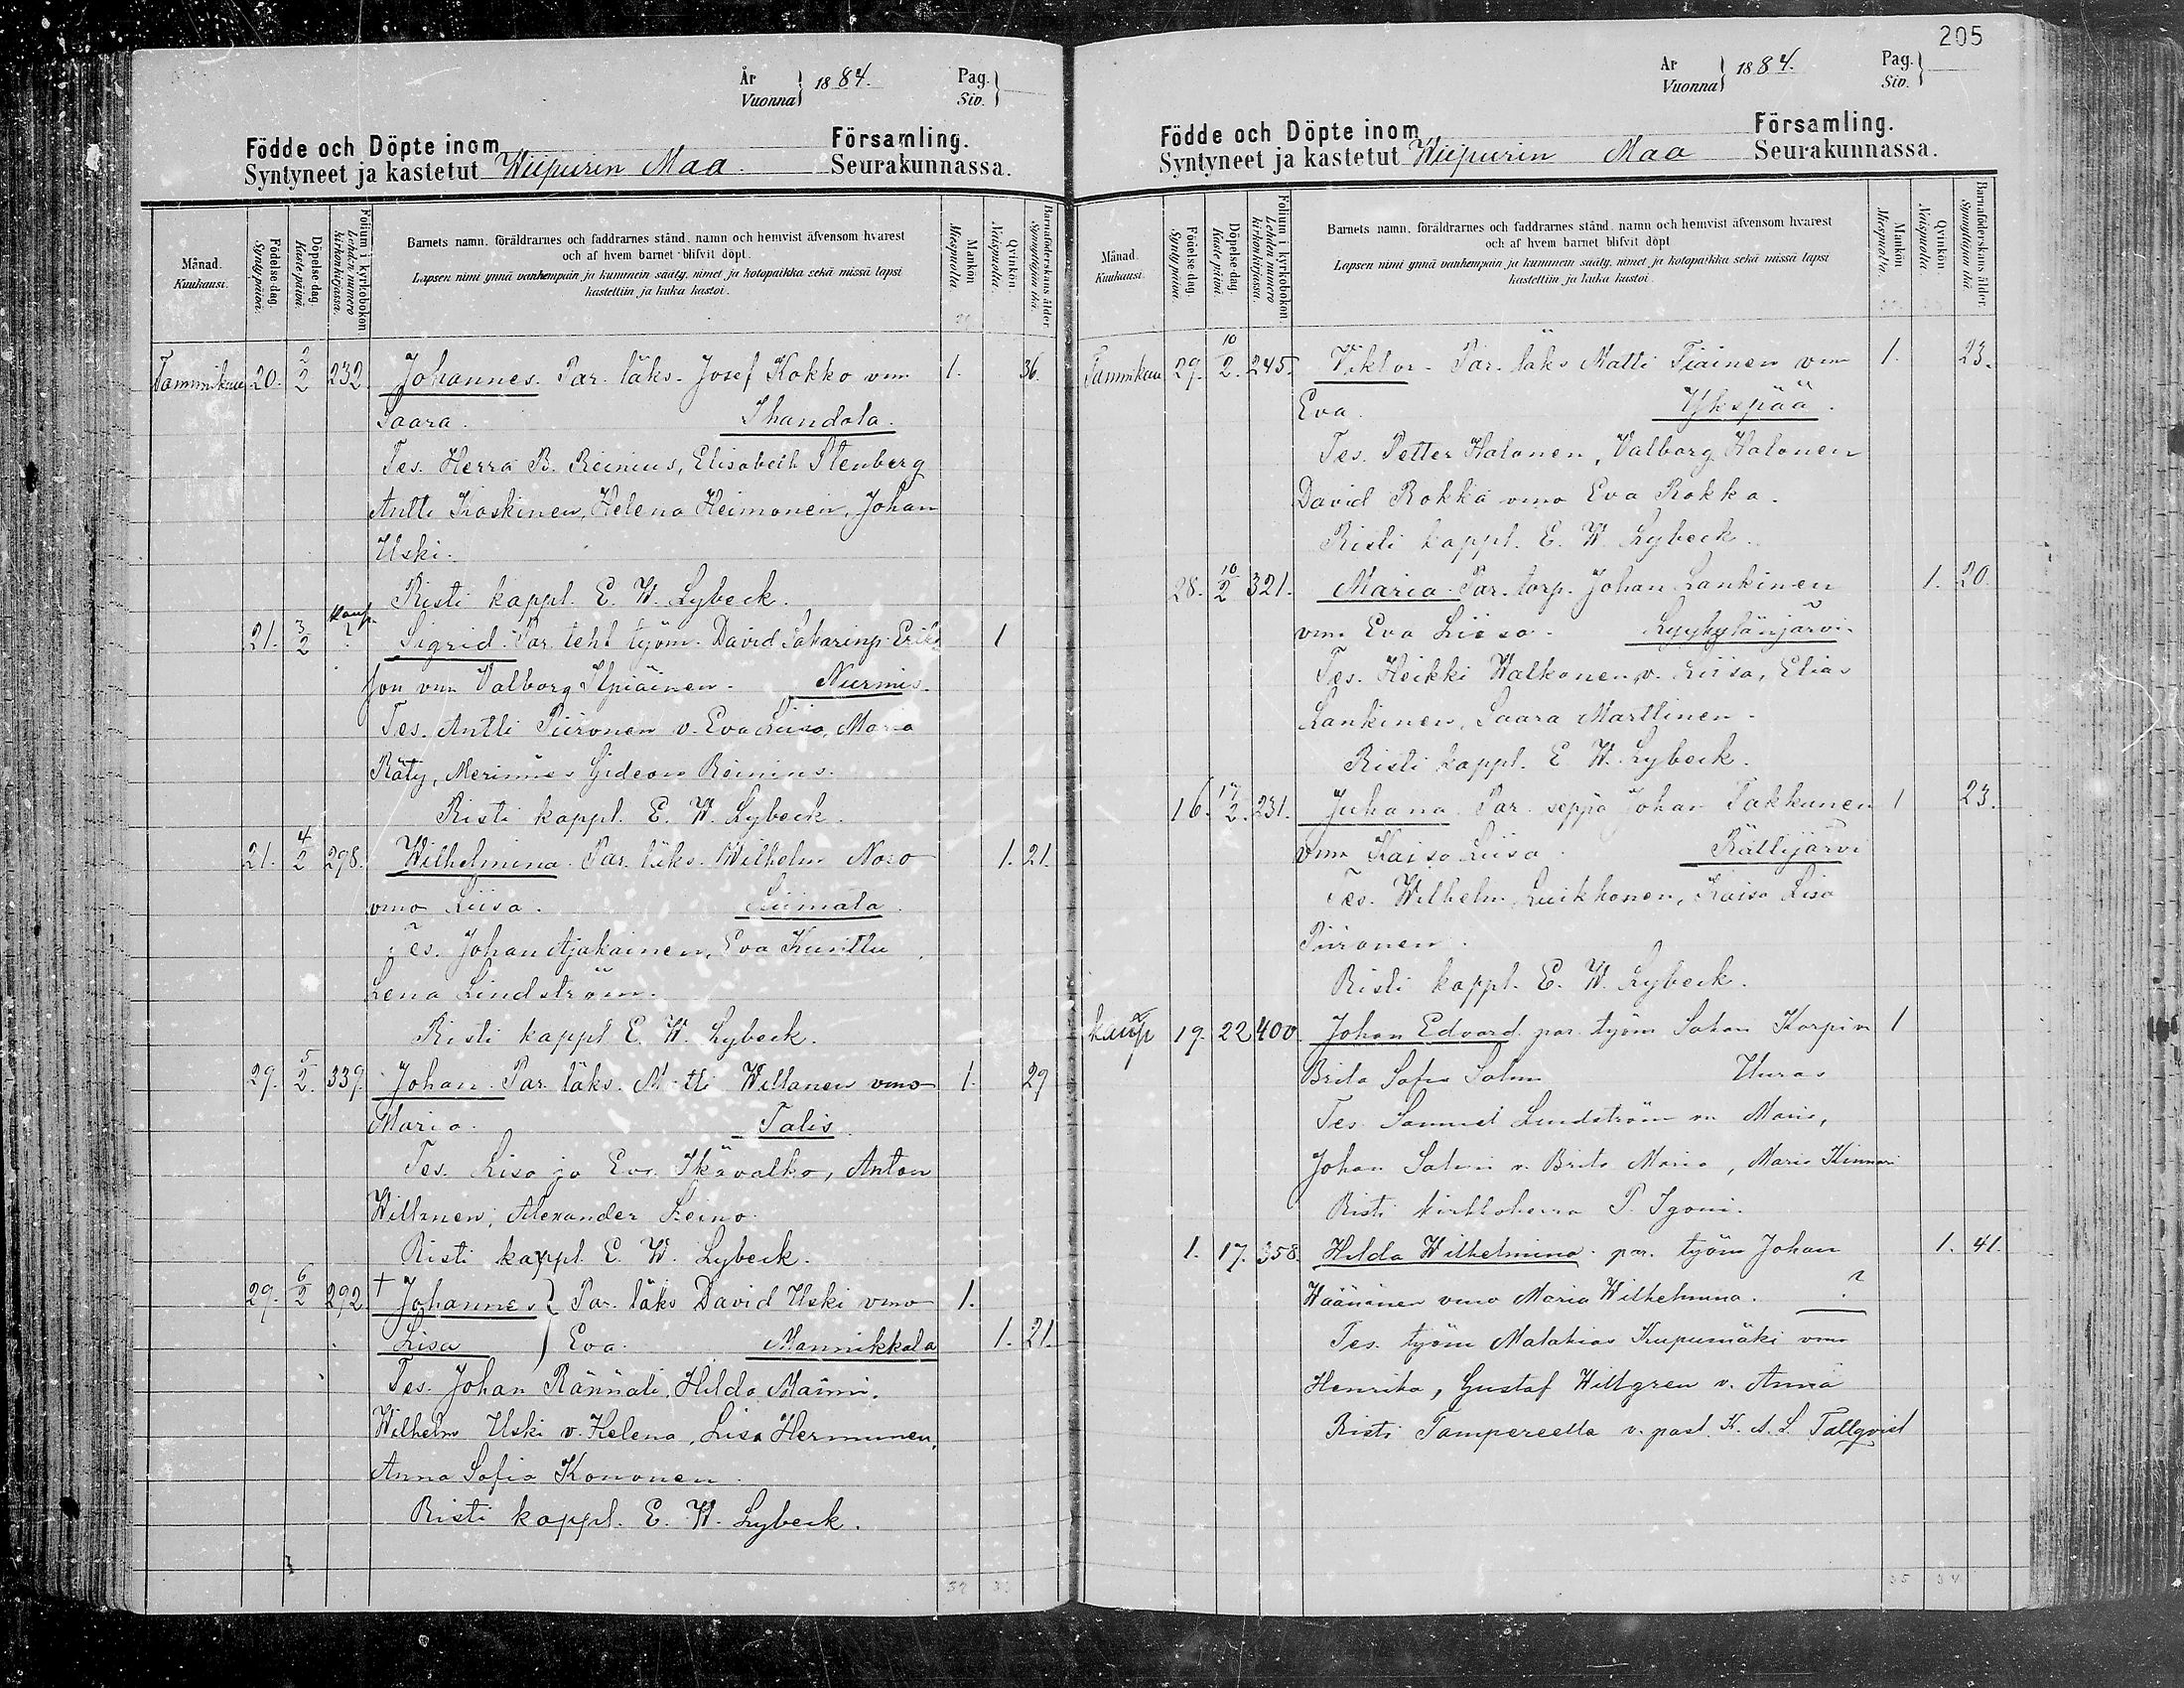 År
Vuonna } 1884.
Pag.
Siv. }
Födde och Döpte inom
Församling.
Syntyneet ja kastetut Wiipurin Maa Seurakunnassa.
Månad.
Kuukausi.
Födelse-dag.
Synty päivä.
Döpelse-dag.
Kaste päivä.
Folium i kyrkobokon.
Lehden numero kirkonkirjassa.
Barnets namn, föräldrarnes och faddrarnes stånd, namn och hemvist äfvensom hvarest
och af hvem barnet blifvit döpt.
Lapsen nimi ynnä vanhempain ja kummein sääty, nimet ja kotopaikka sekä missä lapsi
kastettiin ja kuka kastoi.
Mankön
Miespuolta.
Qvinkön
Naispuolta.
Barnaföderskans ålder.
Synnyttäjän ikä.
Tammikuu 20. 2/2 232 Johannes. Par. läks. Josef Kokko vmo 1. 36.
Saara. Ihandala.
Tes. Herra B. Reinius, Elisabeth Stenberg
Antti Kaskinen, Helena Heimonen, Johan
Uski.
Risti kappl. E. W. Lybeck.
21. 3/2 kaup. ? Sigrid. Par. teht. työm. David Sakarinp. Eriks 1
son vmo Valborg Ilpiäinen. Nurmis.
Tes. Antti Piironen v. Eva Liisa, Maria
Räty, Merimies Gideon Reinius.
Risti kappl. E. W. Lybeck.
21. 4/2 298. Wilhelmina. Par. läks. Wilhelm Noro 1. 21.
vmo Liisa. Liimata.
Tes. Johan Ajakainen, Eva Kurittu
Lena Lindström.
Risti kappl E. W. Lybeck.
29. 5/2. 339. Johan. Par. läks. Matti Willanen vmo 1. 29
Maria. Talis.
Tes. Lisa ja Eva Ikävalko, Anton
Willanen, Alexander Leino.
Risti kappl. E. W. Lybeck.
29. 6/2 292. † Johannes } Par. läks David Uski vmo 1.
Lisa } Eva. Mannikkala 1. 21.
Tes. Johan Rännäli, Hilda Männi,
Wilhelm Uski v. Helena, Lisa Hermunen,
Anna Sofia Kononen.
Risti kappl. E. W. Lybeck.
205
År
Vuonna } 1884.
Pag.
Siv. }
Födde och Döpte inom
Församling.
Syntyneet ja kastetut Wiipurin Maa Seurakunnassa.
Månad.
Kuukausi.
Födelse-dag.
Synty päivä.
Döpelse-dag.
Kaste päivä.
Folium i kyrkobokon.
Lehden numero kirkonkirjassa.
Barnets namn, föräldrarnes och faddrarnes stånd, namn och hemvist äfvensom hvarest
och af hvem barnet blifvit döpt
Lapsen nimi ynnä vanhempain ja kummein sääty, nimet ja kotopaikka sekä missä lapsi
kastettiin ja kuka kastoi.
Mankön
Miespuolta.
Qvinkön
Naispuolta.
Barnaföderskans ålder.
Synnyttäjän ikä.
Tammikuu 29. 10/2. 245. Viktor. Par. läks Matti Tiainen vmo 1. 23.
Eva. Ykspää.
Tes. Petter Halonen, Valborg Halonen
David Rokka vmo Eva Rokka.
Risti kappl. E. W. Lybeck.
28. 10/2 321. Maria. Par. torp. Johan Lankinen 1. 20.
vmo Eva Liisa. Lyykylänjärvi.
Tes. Heikki Walkonen, v. Liisa, Elias
Lankinen, Saara Marttinen.
Risti kappl. E W. Lybeck.
16. 17/2. 231. Juhana. Par. seppä Johan Takkunen 1 23.
vmo Kaisa Liisa. Rättijärvi
Tes. Wilhelm Luikkonen, Kaisa Lisa
Piironen.
Risti kappl. E. W. Lybeck.
kaup 19. 22 400 Johan Edvard par. työm 1
Brita Sofia Uuras
Tes. Samuel Lindström vn Maria,
Johan v. Brita Maria, Maria Kinnari
Risti kirkkoherra P. Igoni.
1. 17. 358. Hilda Wilhelmina. par. työm Johan 1. 41.
Wäänänen vmo Maria Wilhelmina. ?
Tes. työm Malakias Kupumäki vmo
Henrika, Gustaf Willgren v. Anna
Risti Tampereella v. past. K. A. L. Tallqvist